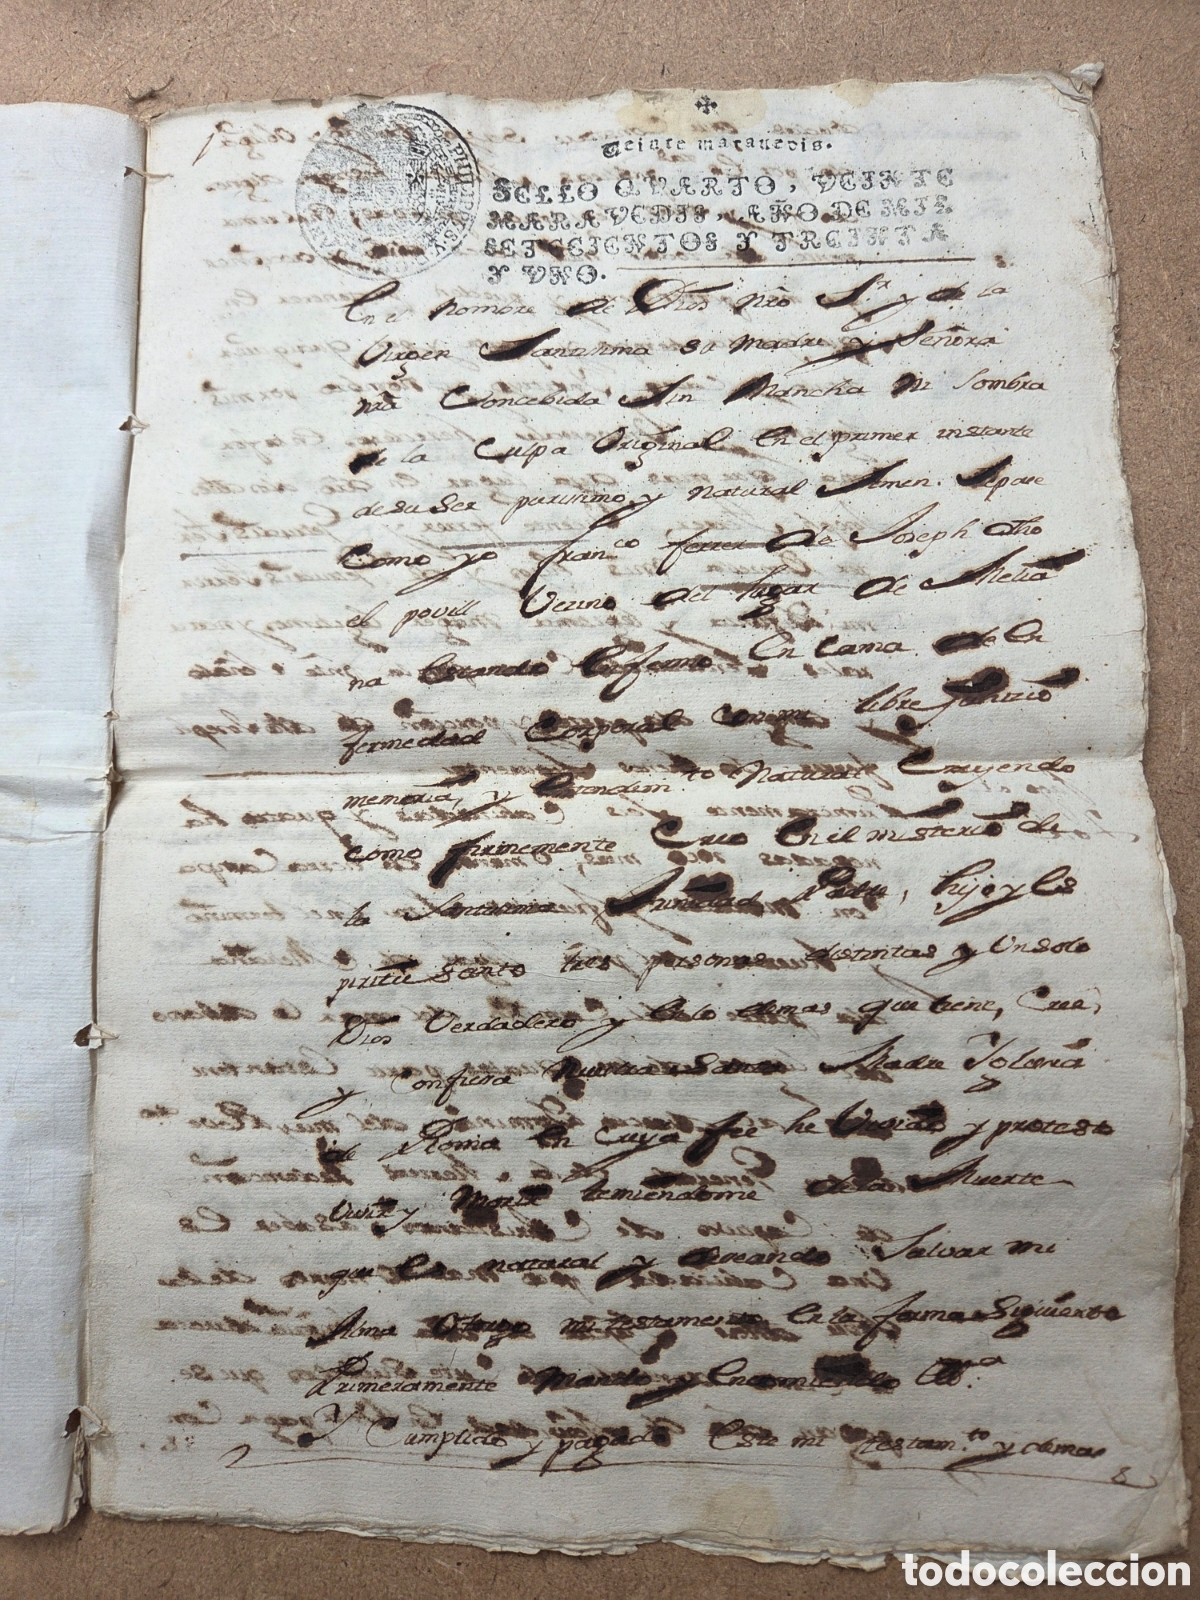 Veinte maravedis.
SELLO QVARTO, VEINTE
MARAVEDIS, AÑO DE MIL
SETECIENTOS Y TREINTA
Y VNO.
En el nombre de Dios nro Sr. y de la
Virgen Santissima su Madre y Señora
nra Concebida Sin Mancha ni Sombra
de la Culpa Original En el primer instante
de su Ser purissimo y natural Amen. Sepase
Como yo franco ferrer de Joseph
el povill Vezino del lugar de Melia
na Estando Enfermo En Cama de En
fermedad Corporal Con mi libre Juizio
memoria, y Entendimto Natural Creyendo
como firmemente Creo En el misterio de
la Santissima Trinidad Padre, hijo y Es
piritu Santo tres personas distintas y Un solo
Dios Verdadero y todo lo demas que tiene, Cree,
y Confiesa Nuestra Santa Madre Yglesia
de Roma En Cuya fee he Vivido y protesto
Vivir y Morir temiendome de la Muerte
que Es natural y deseando Salvar mi
Alma Otorgo mi testamento En la forma Siguiente
Primeramente Mando y Encomiendo
Y Cumplido y pagado Este mi testamto y demas
todocoleccion